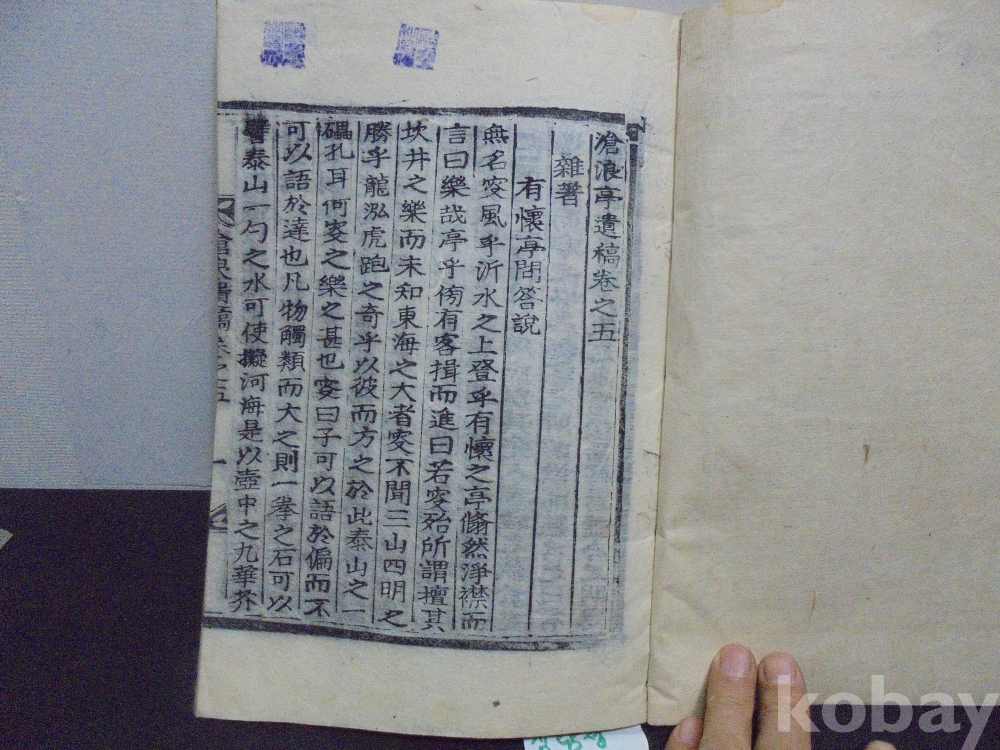 滄浪亭遺稿卷之五
雜著
有懷亭問答說
無名叟風乎沂水之上登乎有懷之亭翛然淨襟而
言曰樂哉亭乎傍有客揖而進曰若叟殆所謂擅其
坎井之樂而未知東海之大者叟不聞三山四明之
勝乎龍泓虎跑之奇乎以彼而方之於此泰山之一
礨孔耳何叟之樂之甚也叟曰子可以語於偏而不
可以語於達也凡物觸類而大之則一拳之石可以
譬泰山一勺之水可使擬河海是以壺中之九華芥
遺稿卷之五
一
kobay